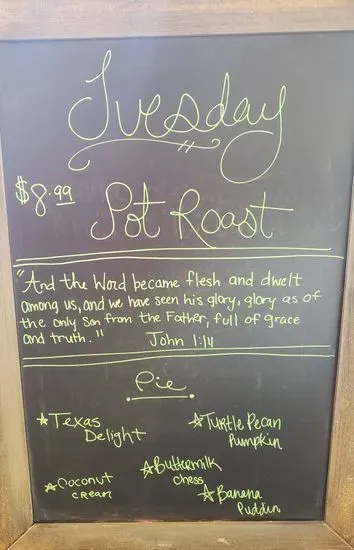 Tuesday
$8.99 Pot Roast
"And the Word became flesh and dwelt
among us, and we have seen his glory, glory as of
the only Son from the Father, full of grace
and truth." John 1:14
Pie
☆Texas
Delight
☆Turtle Pecan
Pumpkin
☆Coconut
cream
☆Buttermilk
chess
☆Banana
Puddin